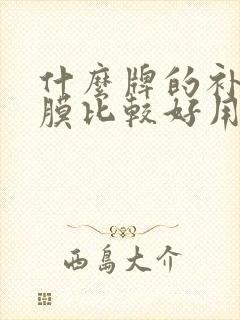 什麼牌的补
膜比较好用
西島大介